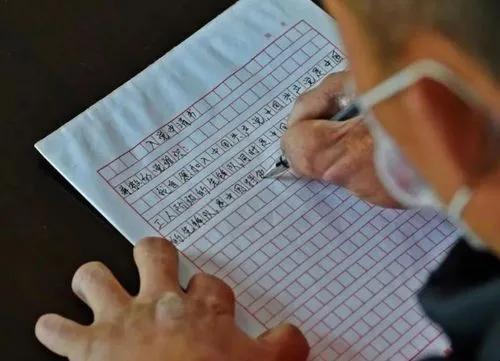 入党申请书
尊敬的党组织：
我自愿加入中国共产党，中国共产党是中国
工人阶级的先锋队，同时是中
的先锋队，是中国特